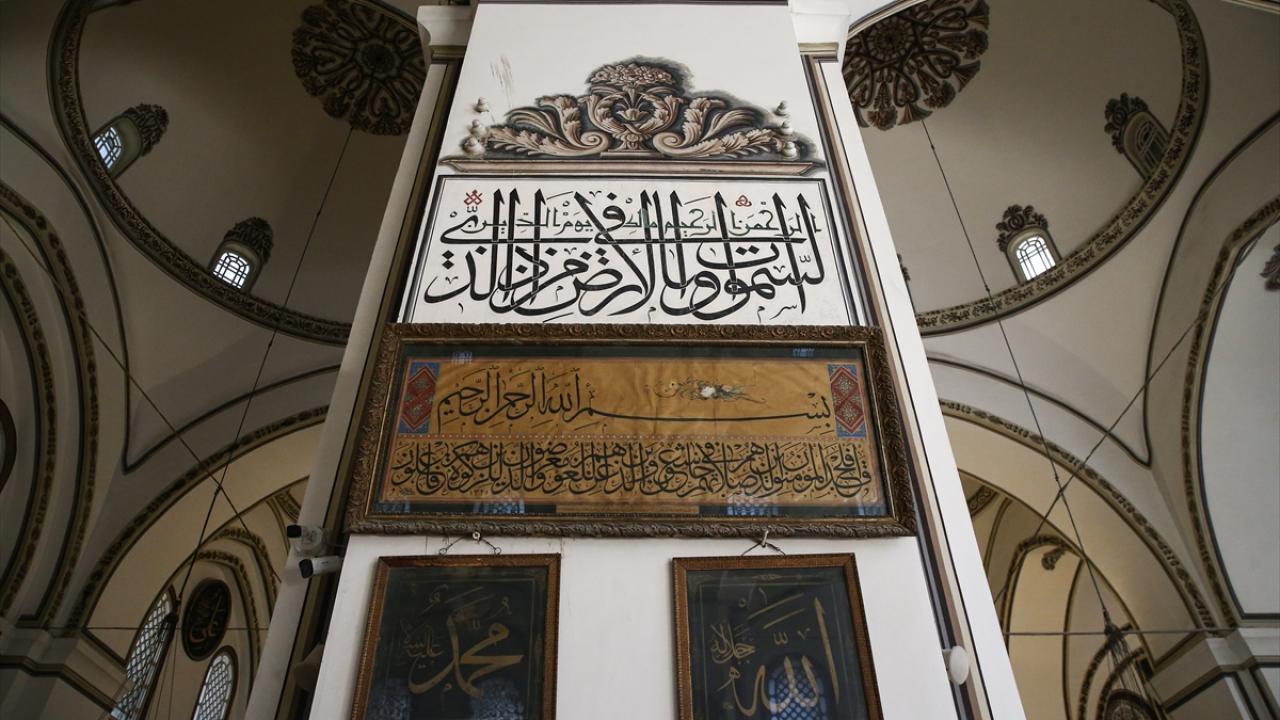 الرحمن الرحيم مالك يوم الدين
السموات وما في الأرض من ذا الذي
بسم الله الرحمن الرحيم
قد افلح المؤمنون الذين هم في صلاتهم خاشعون والذين هم عن اللغو معرضون والذين هم للزكوة فاعلون
الله جل جلاله
محمد عليه السلام